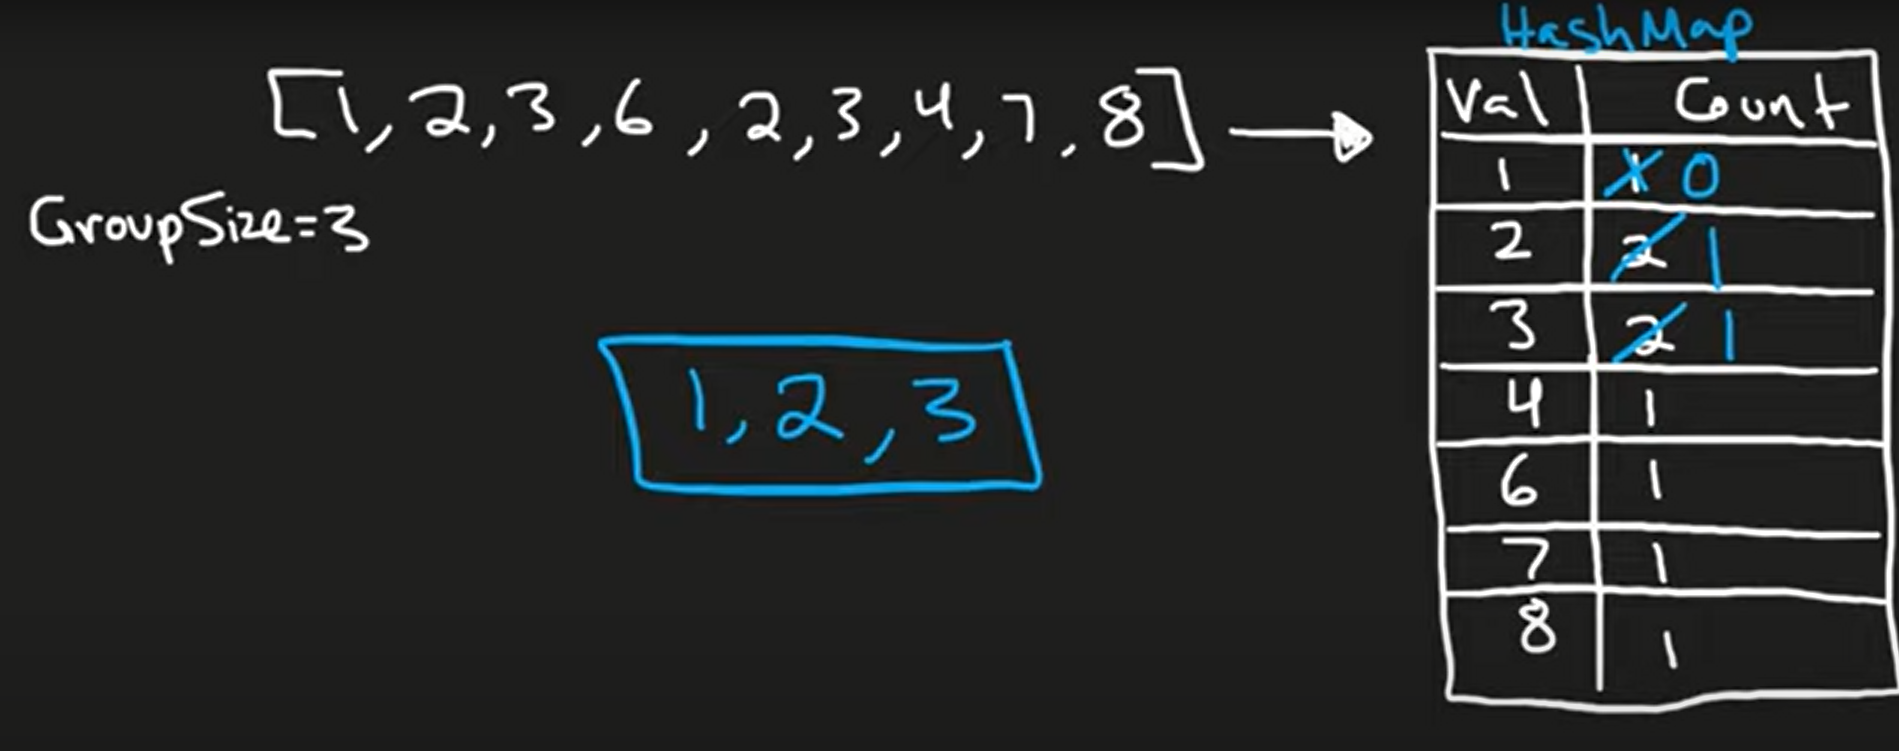 [1, 2, 3, 6, 2, 3, 4, 7, 8]
GroupSize=3
1, 2, 3
HashMap
Val Count
1 1 0
2 2 1
3 2 1
4 1
6 1
7 1
8 1